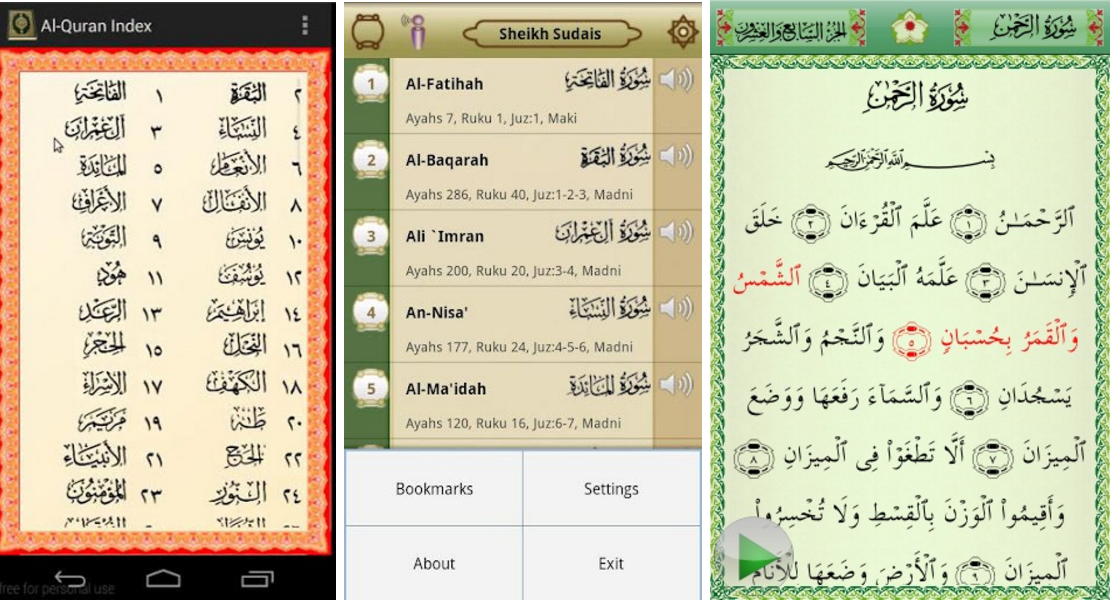 Al-Quran Index
٢ البقرة ١ الفاتحة
٤ النساء ٣ آل عمران
٦ الأنعام ٥ المائدة
٨ الأنفال ٧ الأعراف
١٠ يونس ٩ التوبة
١٢ يوسف ١١ هود
١٤ إبراهيم ١٣ الرعد
١٦ النحل ١٥ الحجر
١٨ الكهف ١٧ الإسراء
٢٠ طه ١٩ مريم
٢٢ الحج ٢١ الأنبياء
٢٤ النور ٢٣ المؤمنون
free for personal use
Sheikh Sudais
1 Al-Fatihah سورة الفاتحة
Ayahs 7, Ruku 1, Juz:1, Maki
2 Al-Baqarah سورة البقرة
Ayahs 286, Ruku 40, Juz:1-2-3, Madni
3 Ali `Imran سورة آل عمران
Ayahs 200, Ruku 20, Juz:3-4, Madni
4 An-Nisa' سورة النساء
Ayahs 177, Ruku 24, Juz:4-5-6, Madni
5 Al-Ma'idah سورة المائدة
Ayahs 120, Ruku 16, Juz:6-7, Madni
Bookmarks Settings
About Exit
سورة الرحمن الجزء السابع والعشرون
سورة الرحمن
بسم الله الرحمن الرحيم
ٱلرَّحْمَـٰنُ ١ عَلَّمَ ٱلْقُرْءَانَ ٢ خَلَقَ
ٱلْإِنسَـٰنَ ٣ عَلَّمَهُ ٱلْبَيَانَ ٤ ٱلشَّمْسُ
وَٱلْقَمَرُ بِحُسْبَانٍ ٥ وَٱلنَّجْمُ وَٱلشَّجَرُ
يَسْجُدَانِ ٦ وَٱلسَّمَآءَ رَفَعَهَا وَوَضَعَ
ٱلْمِيزَانَ ٧ أَلَّا تَطْغَوْا۟ فِى ٱلْمِيزَانِ ٨
وَأَقِيمُوا۟ ٱلْوَزْنَ بِٱلْقِسْطِ وَلَا تُخْسِرُوا۟
ٱلْمِيزَانَ ٩ وَٱلْأَرْضَ وَضَعَهَا لِلْأَنَامِ